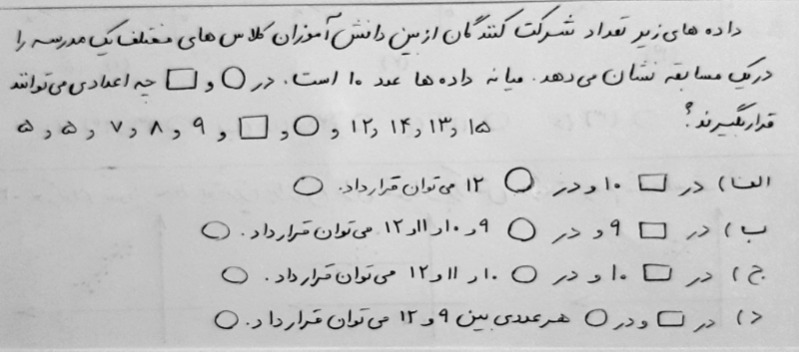 داده های زیر تعداد شرکت کنندگان از بین دانش آموزان کلاس های مختلف یک مدرسه را
در یک مسابقه نشان می دهد. میانه داده ها عدد ۱۰ است. در ○ و □ چه اعدادی می توانند
قرار بگیرند؟
۵ و ۵ و ۷ و ۸ و ۹ و □ و ○ و ۱۲ و ۱۴ و ۱۳ و ۱۵
الف) در □ ۱۰ و در ○ ۱۲ می توان قرار داد. ○
ب) در □ ۹ و در ○ ۹ و ۱۰ و ۱۱ و ۱۲ می توان قرار داد. ○
ج) در □ ۱۰ و در ○ ۱۰ و ۱۱ و ۱۲ می توان قرار داد. ○
د) در □ و در ○ هر عددی بین ۹ و ۱۲ می توان قرار داد. ○